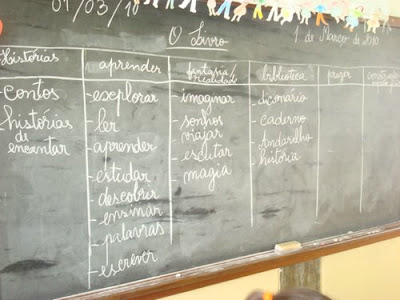 01/03/10
O Livro
1 de Março de 2010
Histórias
aprender
fantasia/
realidade
biblioteca
prazer
Contos
histórias
de
encantar
- explorar
- ler
- aprender
- estudar
- descobrir
- ensinar
- palavras
- escrever
- imaginar
- sonhos
viajar
- escutar
- magia
- dicionário
- caderno
- Andarilho
- história